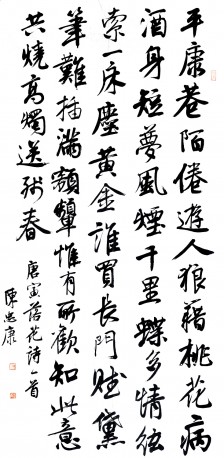 平康巷陌倦遊人狼籍桃花病
酒身短夢風煙千里蝶多情弦
索一床塵黃金誰買長門賦黛
筆難描滿額顰惟有所歡知此意
共燒高燭送殘春
唐寅落花詩一首
陳忠康